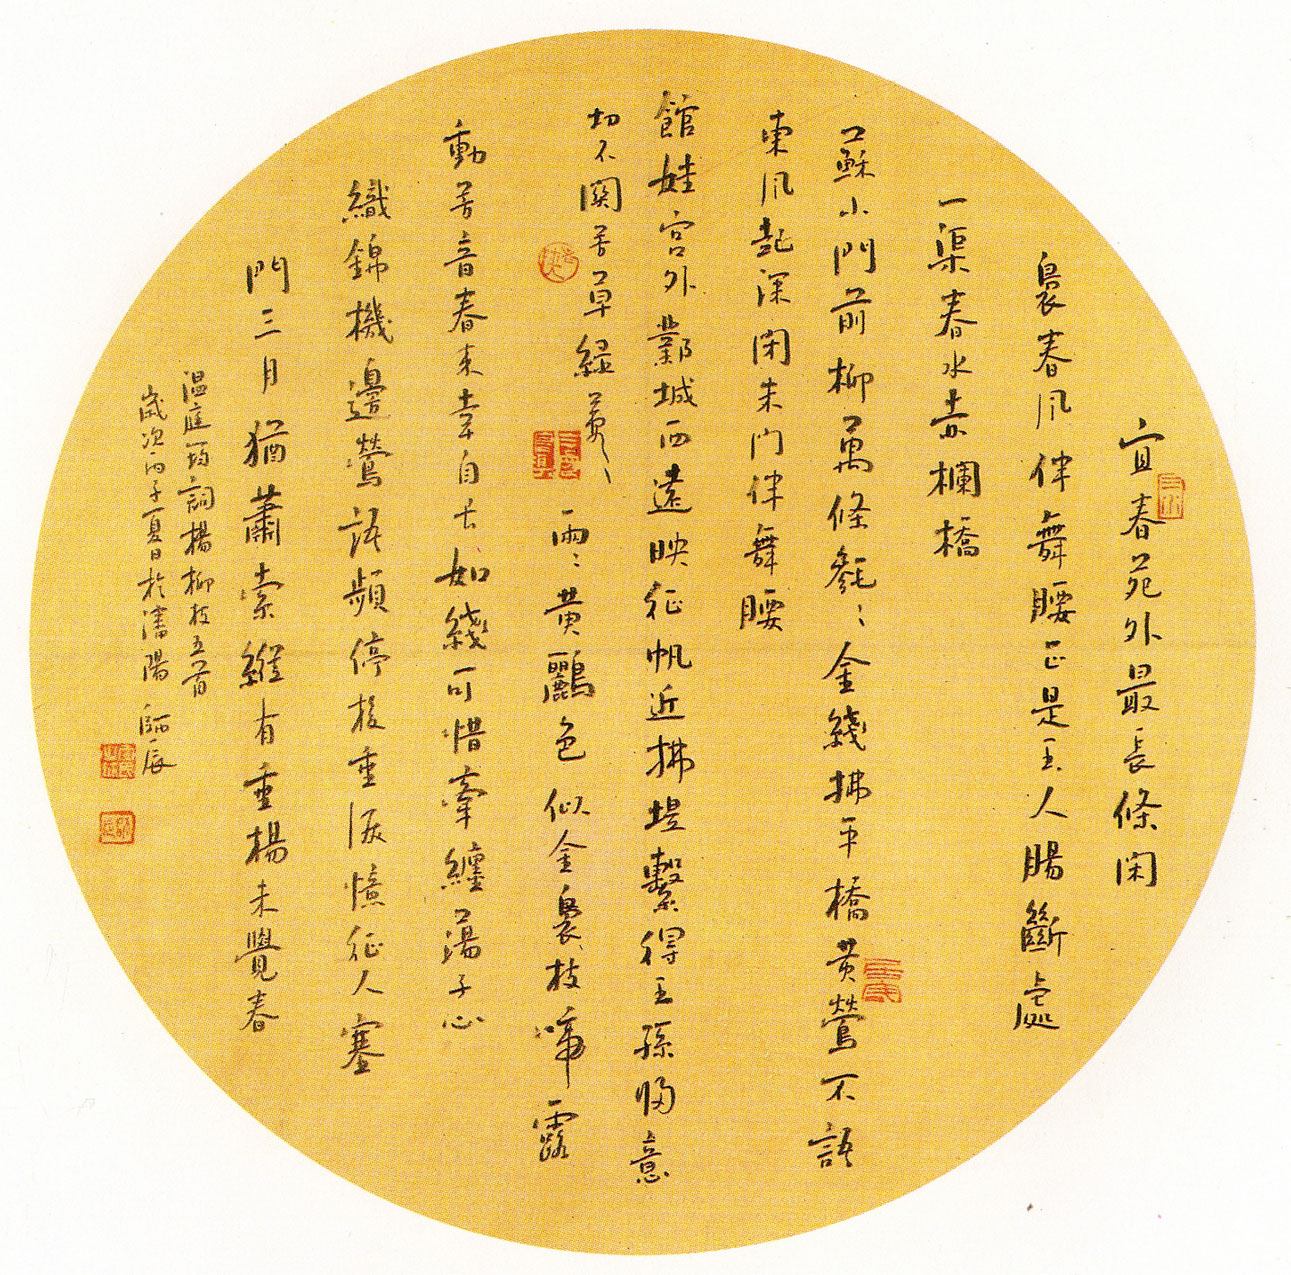 宜春苑外最長條閑
裊春風伴舞腰正是玉人腸斷處
一渠春水赤欄橋
蘇小門前柳萬條毿〻金綫拂平橋黃鶯不語
東風起深閉朱門伴舞腰
館娃宮外鄴城西遠映征帆近拂堤繫得王孫歸意
切不關芳草綠萋〻
兩〻黃鸝色似金裊枝啼露
動芳音春來幸自長如綫可惜牽纏蕩子心
織錦機邊鶯語頻停梭垂淚憶征人塞
門三月猶蕭索縱有垂楊未覺春
温庭筠詞楊柳枝五首
歲次丙子夏日於瀋陽